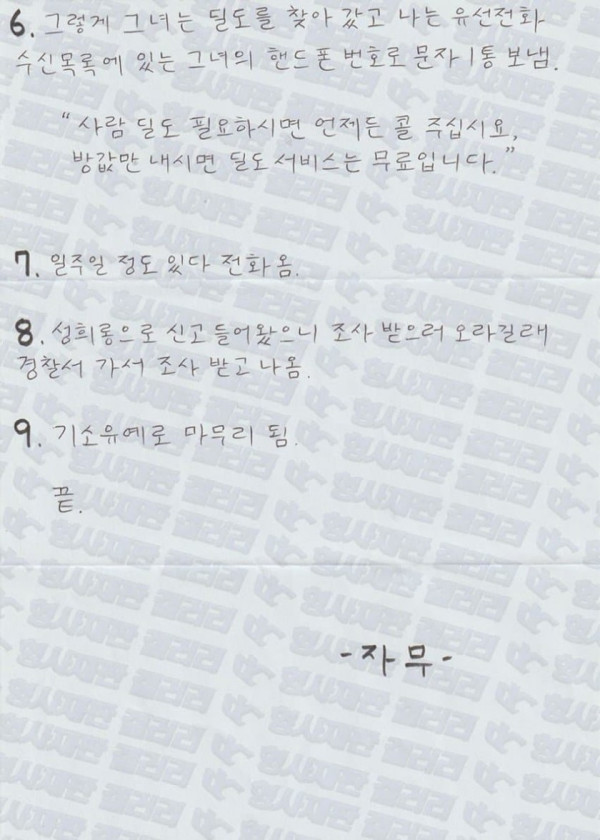 6. 그렇게 그녀는 딜도를 찾아 갔고 나는 유선전화
수신목록에 있는 그녀의 핸드폰 번호로 문자 1통 보냄.
“사람 딜도 필요하시면 언제든 콜 주십시요,
방값만 내시면 딜도 서비스는 무료입니다.”
7. 일주일 정도 있다 전화옴.
8. 성희롱으로 신고 들어왔으니 조사 받으러 오라길래
경찰서 가서 조사 받고 나옴.
9. 기소유예로 마무리 됨.
끝.
-자무-